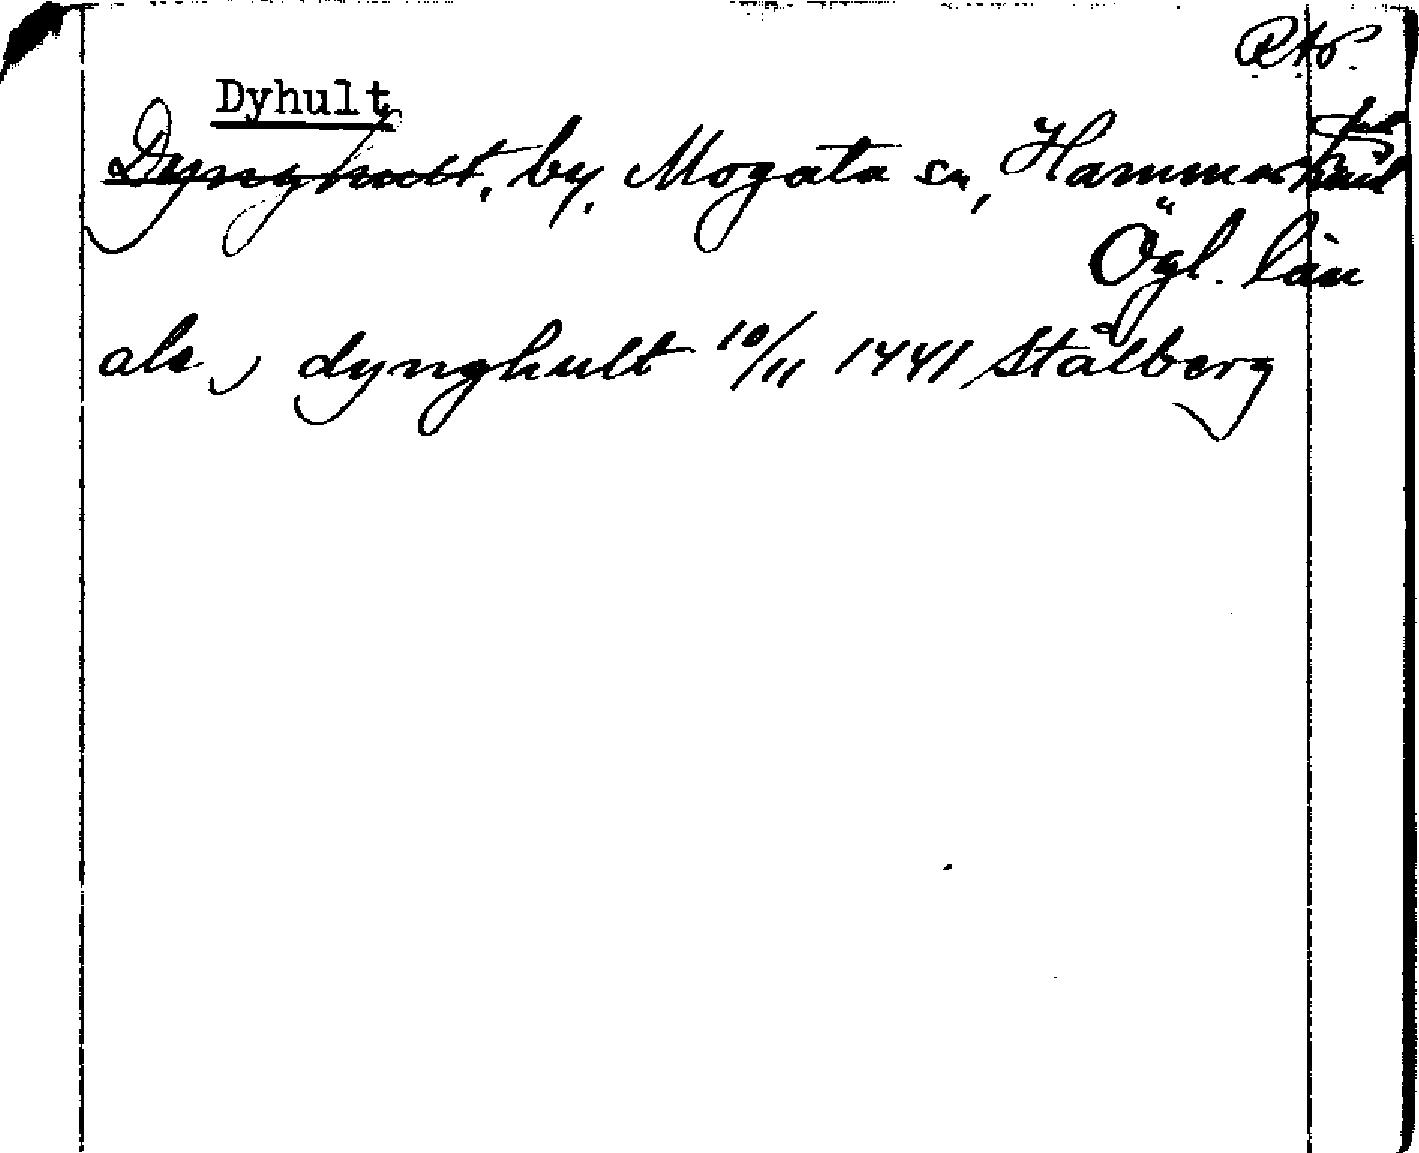 Dyhult
Dynghult, by, Mogata sn, Hammarkind
Ögl. län
als, dynghult 10/11 1441 Stålberg